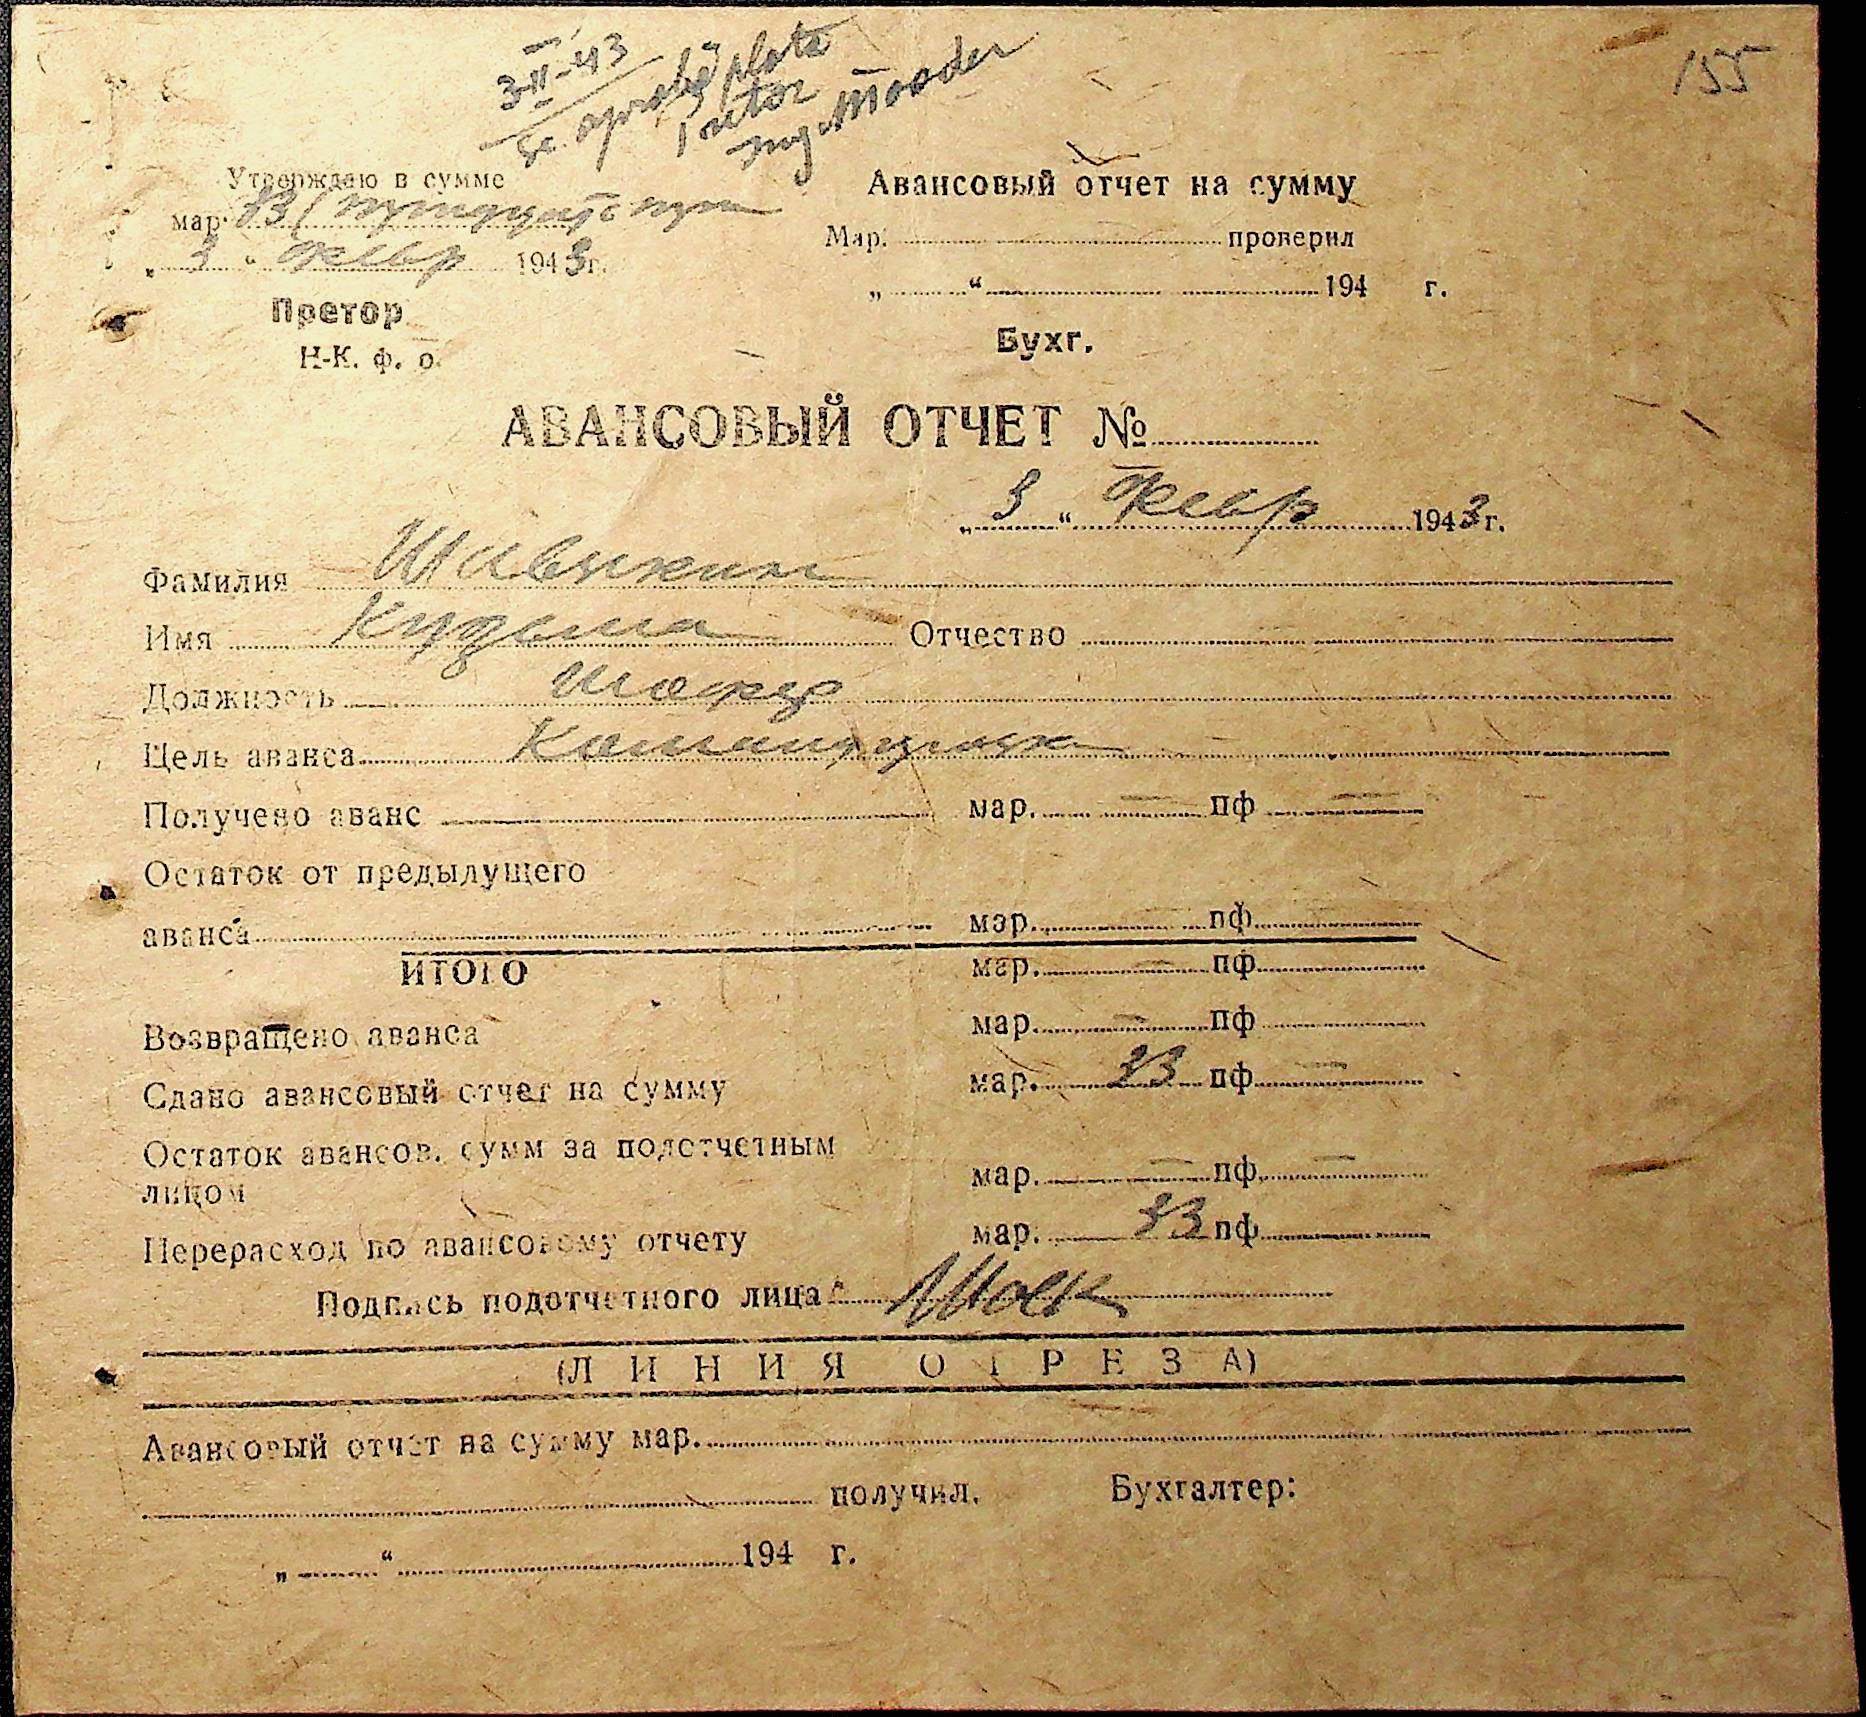 155
3-II-43
se aprobă plata
Утверждаю в сумме
мар. 33 (тридцать три
„ 3 “ февр 1943г.
Претор
Н-К. ф. о.
Авансовый отчет на сумму
Мар. проверил
„ “ 194 г.
Бухг.
АВАНСОВЫЙ ОТЧЕТ №
„ 3 “ февр 1943г.
Фамилия
Имя Кузьма Отчество
Должность шофер
Цель аванса Командировка
Получено аванс мар. — пф —
Остаток от предылущего
аванса мар. — пф —
ИТОГО мар. — пф
Возвращено аванса мар. — пф
Сдано авансовый отчет на сумму мар. 33 пф —
Остаток авансов. сумм за подотчетным
лицом мар. — пф. —
Перерасход по авансовому отчету мар. 33 пф.
Подпись подотчетного лица
(ЛИНИЯ ОТРЕЗА)
Авансовый отчет на сумму мар.
получил. Бухгалтер:
„ “ 194 г.